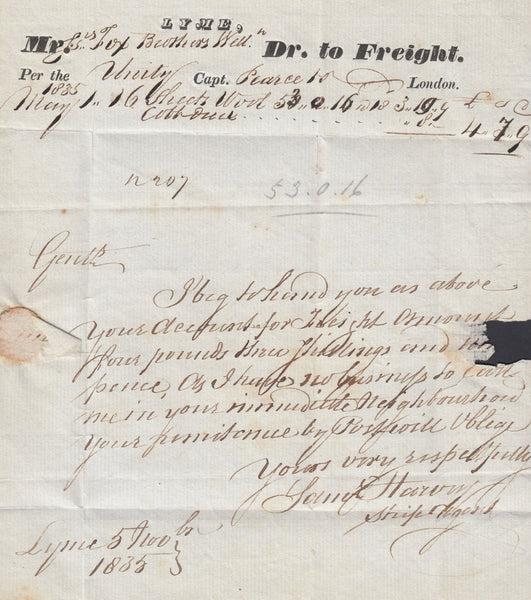 LYME,
Mr. Fox Brothers Well.n Dr. to Freight.
Per the Unity Capt. Pearce to London.
1835
May 1 16 Sheets Wool 53 0 16 3 19 9 £ s D
Cobb dues . . . . . . . . . . . 8
4 7 9
n 207
53.0.16
Gentn
I beg to hand you as above
Your Account for Freight Amount
four pounds Seven Shillings and
pence, As I have no business to
me in your immediate Neighbourhood
your remittance by Post will Oblige
Yours very respectfully
Saml Harvey
Ship Agent
Lyme 5 Novbr
1835